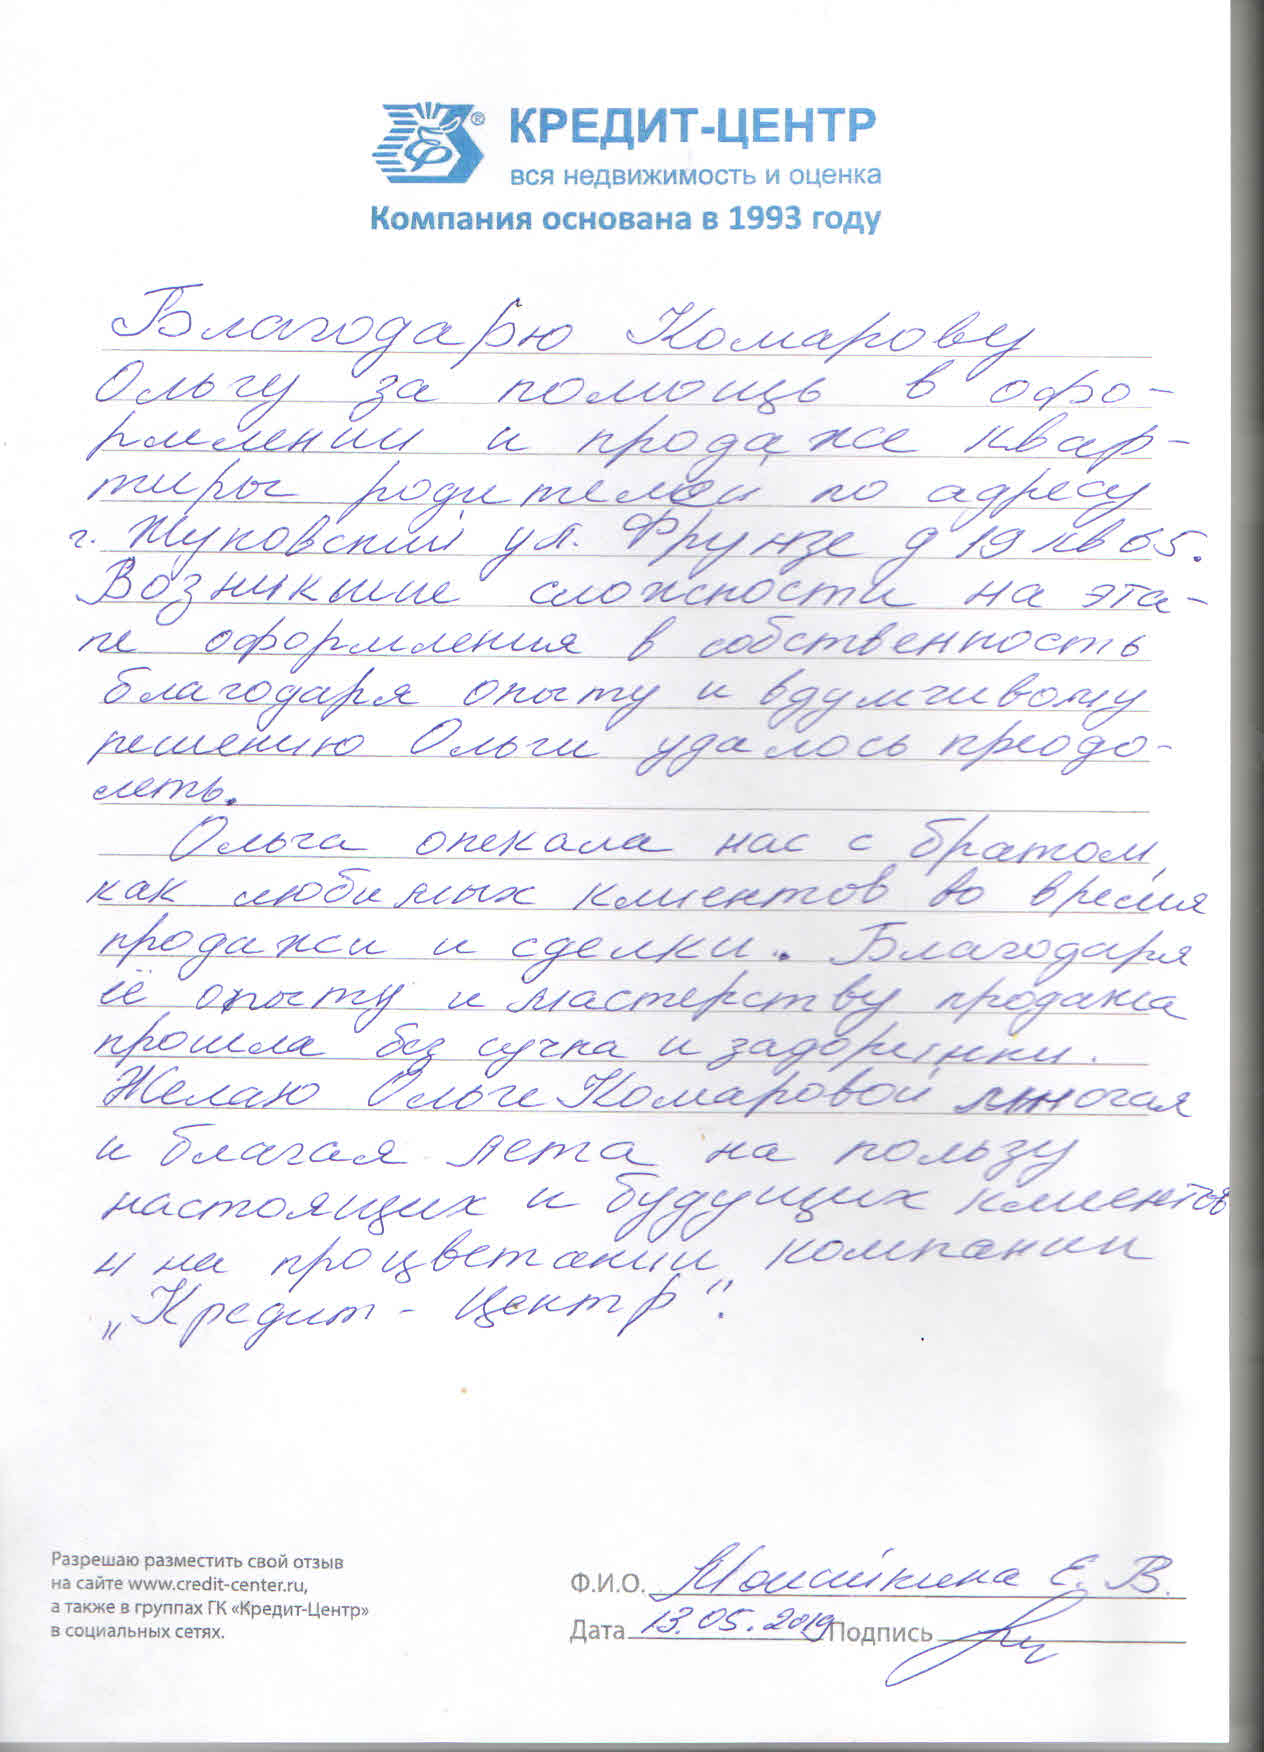 КРЕДИТ-ЦЕНТР
вся недвижимость и оценка
Компания основана в 1993 году
Благодарю Комарову
Ольгу за помощь в офо-
рмлении и продаже квар-
тиры родителей по адресу
г. Жуковский ул. Фрунзе д 19 кв 65.
Возникшие сложности на эта-
пе оформления в собственность
благодаря опыту и вдумчивому
решению Ольги удалось преодо-
леть.
Ольга опекала нас с братом,
как любимых клиентов во время
продажи и сделки. Благодаря
её опыту и мастерству продажа
прошла без сучка и задоринки.
Желаю Ольге Комаровой многая
и благая лета на пользу
настоящих и будущих клиентов
и на процветании компании
„Кредит-Центр".
Разрешаю разместить свой отзыв
на сайте www.credit-center.ru,
а также в группах ГК «Кредит-Центр»
в социальных сетях.
Ф.И.О. Е. В.
Дата 13.05.2019 Подпись